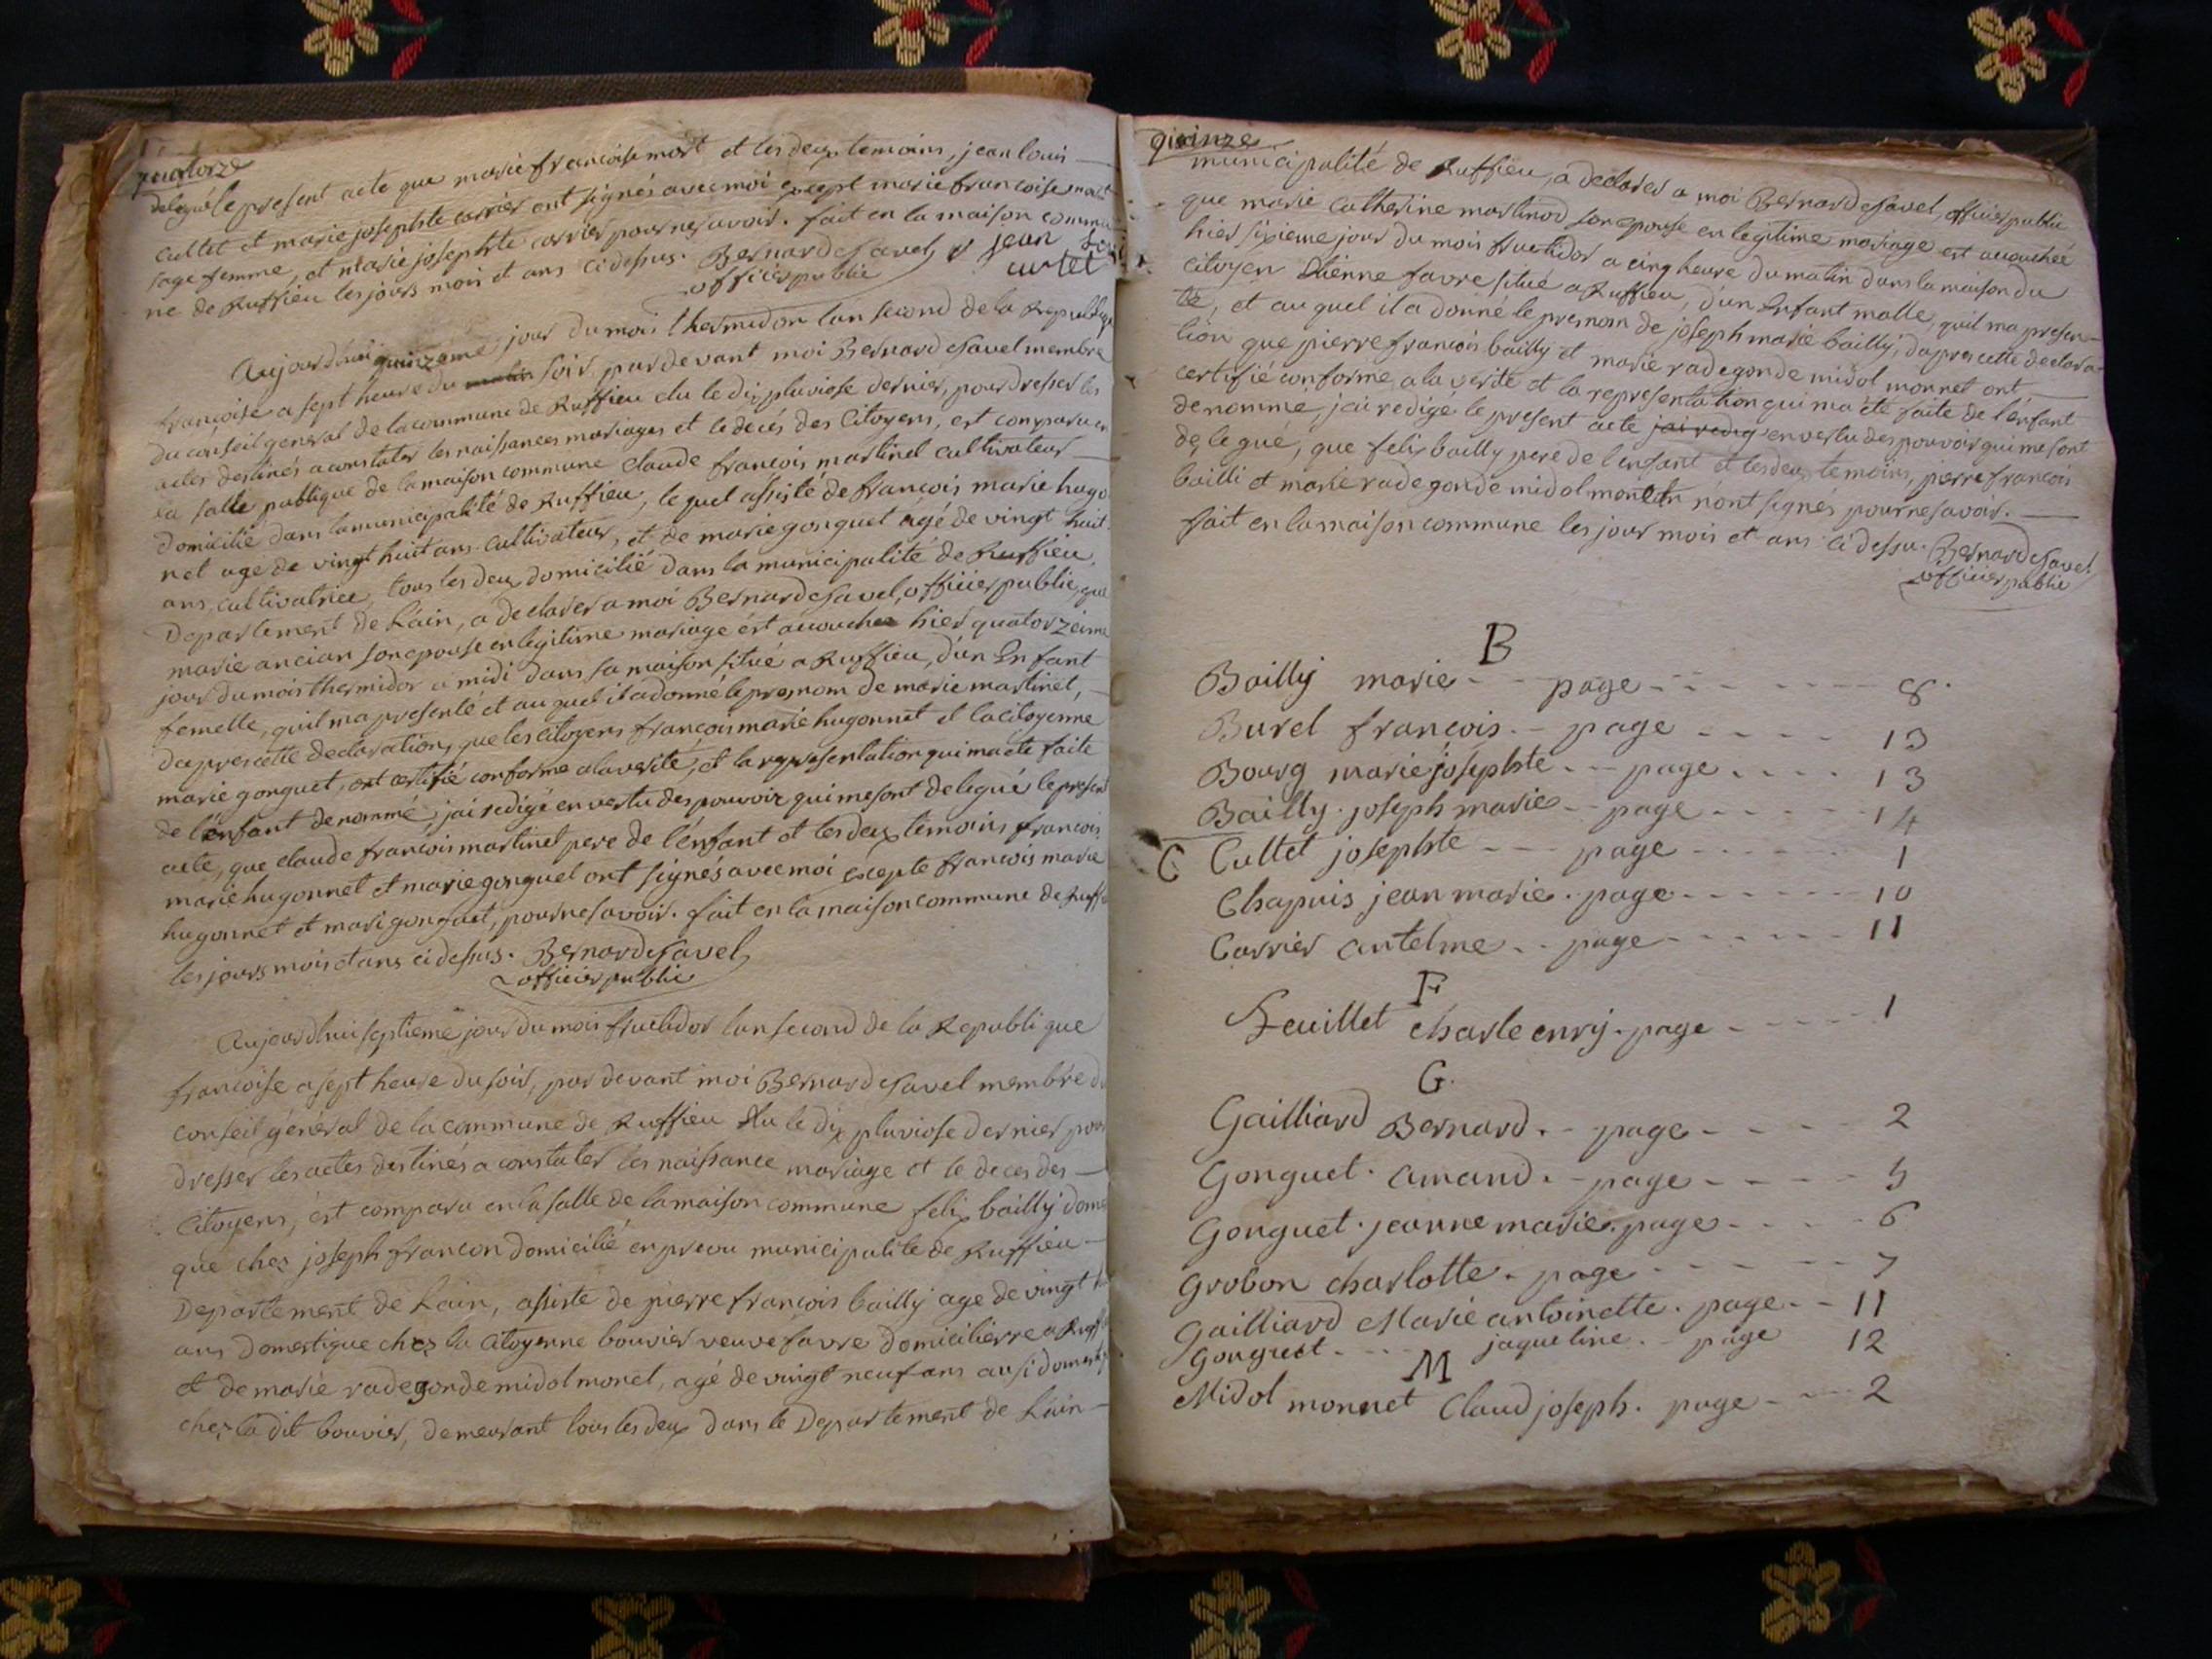 quatorze
delegué le present acte que marie francoise mort et les deux temoins, jean louis
cultet et marie josephte carrier ont signés avec moi except marie francoise mort
sage femme, et marie josephte carrier pour ne savoir. fait en la maison commu
ne de Ruffieu les jours mois et ans ci dessus. Bernard Savel jean Loui
officier public curtet
Aujourdhui quinzeme jour du mois thermidor lan second de la Republique
francoise a sept heure du matin soir, par devant moi Bernard Savel membre
du conseil general de la commune de Ruffieu elu le dix pluviose dernier, pour dresser les
actes destinés a constater les naissances mariages et le decés des Citoyens, est comparu en
la salle publique de la maison commune claude francois martinet cultivateur
domicilié dans la municipalité de Ruffieu, le quel assisté de francois marie hugo
net age de vingt huit ans cultivateur, et de marie gonguet agé de vingt huit
ans, cultivatrice, tous les deux domicilié dans la municipalité de Ruffieu,
Departement de Lain, a declarer a moi Bernard Savel, officier public, que
marie ancian son epouse en legitime mariage est accouchee hier quatorzeime
jour du mois thermidor a midi dans sa maison situé a Ruffieu, d'un Enfant
femelle, quil ma presenté et au quel il a donné le prenom de marie martinet,
dapres cette declaration, que les citoyens francois marie hugonnet et la citoyenne
marie gonguet, ont certifié conforme a la verité, et la representation qui ma eté faite
de l'enfant denommé, jai redigé en vertu des pouvoir qui me sont delegué le present
acte, que claude francois martinet pere de l'enfant et les deux temoins francois
marie hugonnet et marie gonguet ont signés avec moi excepte francois marie
hugonnet et mari gonguet, pour ne savoir. fait en la maison commune de Ruff
les jours mois et ans ci dessus. Bernard Savel
officier public
Aujourdhui septieme jour du mois fructidor lan second de la Republique
francoise a sept heure du soir, par devant moi Bernard Savel membre du
conseil général de la commune de Ruffieu élu le dix pluviose dernier pour
dresser les actes destinés a constater les naissance mariage et le deces des
Citoyens, est comparu en la salle de la maison commune felix bailly dome
que chez joseph francon domicilié en municipalité de Ruffieu
Departement de Lain, assisté de pierre francois bailly age de vingt
ans domestique chez la citoyenne bouvier veuve favre domicilierre a Ruff
et de marie radegonde midol monet, agé de vingt neuf ans ausi domest
chez la dit bouvier, demeurant tous les deux dans le Departement de Lain
quinze
municipalité de Ruffieu, a declarer a moi Bernard Savel, officier public
que marie catherine martinod son epouse en legitime mariage est accouchée
hier sixieme jour du mois fructidor a cinq heure du matin dans la maison du
citoyen Etienne favre situé a Ruffieu, d'un Enfant malle, quil ma presen
té, et au quel il a donné le prenom de joseph marie bailly, dapres cette declara
tion que pierre francois bailly et marie radegonde midol monnet ont
certifié conforme a la verité et la representation qui ma été faite de l'enfant
denomme, jai redigé le present acte jai redig en vertu des pouvoir qui me sont
délegué, que felix bailly pere de l'enfant et les deux temoins, pierre francois
bailli et marie radegonde midol monet n'ont signés pour ne savoir.
fait en la maison commune les jour mois et ans ci dessu. Bernard Savel
officier public
B
Bailly marie - - page - - - - 8.
Burel françois. - page - - - - 13
Bourg marie josephte. - - page. - - - 13
Bailly. joseph marie - page - - - - 14
C Cultet josephte - - - page - - - - 1
Chapuis jean marie. page - - - - 10
Carrier antelme. - page - - - - 11
F
Feuillet charle enry. page - - - - 1
G.
Gailliard Bernard. - page - - - - 2
Gonguet. amand. - page - - - - 5
Gonguet. jeanne marie. page - - - - 6
Grobon charlotte. page - - - - 7
Gailliard Marie antoinette. page. - - 11
Gonguet. - - - jaqueline. - page 12
M
Midol monnet Claud joseph. page - - - 2